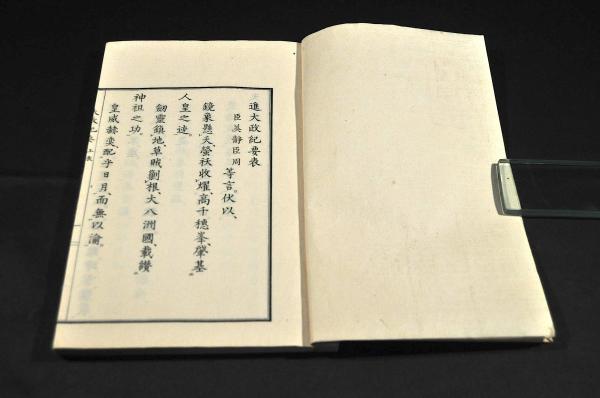 進大政紀要表
臣英静臣周等言。伏以、
鏡象懸天螢、秋收燿、高千穗峯、肇基
人皇之達。
劔靈鎮地草賊、劉根、大八洲國、載讚
神祖之功。
皇威赫奕、配乎日月、而無以渝。